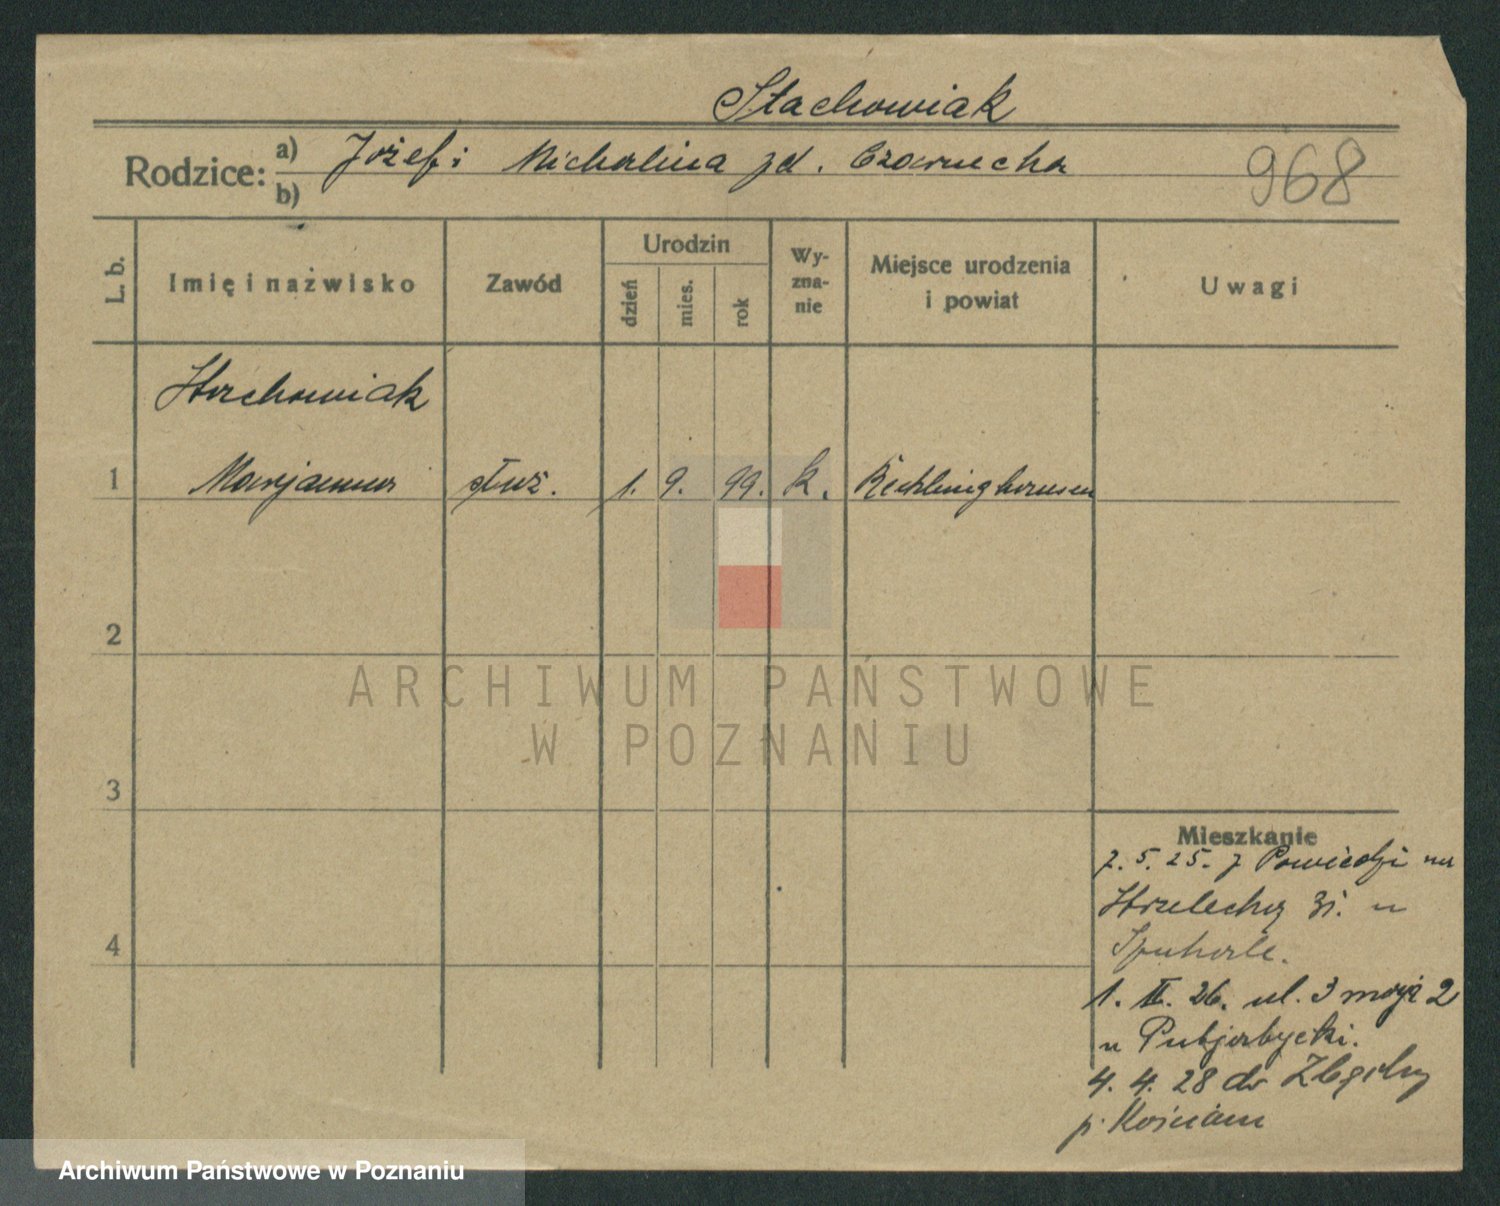 Stachowiak
Rodzice: a) Józef i Michalina zd. Czarnecka
b)
968
L. b.
Imię i nazwisko
Zawód
Urodzin
dzień
mies.
rok
Wy-
zna-
nie
Miejsce urodzenia
i powiat
Uwagi
Stachowiak
1 Marjanna służ. 1. 9. 99. k. Recklinghausen
2
3
4
ARCHIWUM PAŃSTWOWE
W POZNANIU
Mieszkanie
7. 5. 25. z na
Strzelecka 31. u
1. II. 26. ul. 3 maja 2
u
4. 4. 28 do
p. Kościan
Archiwum Państwowe w Poznaniu